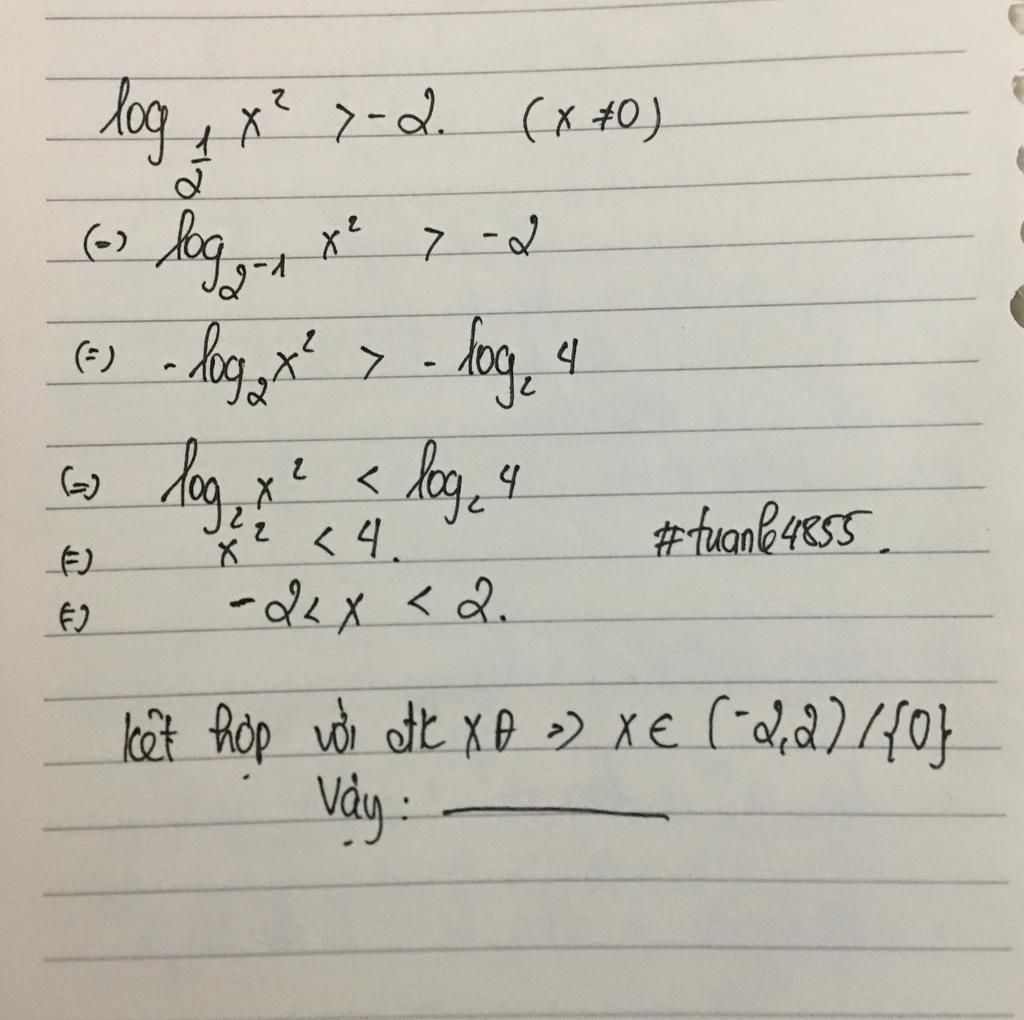 log_{1/2} x² > -2. (x ≠ 0)
(=) log_{2^{-1}} x² > -2
(=) - log_2 x² > - log_2 4
(=) log_2 x² < log_2 4
(=) x² < 4.
#tuanle4855.
(=) -2 < x < 2.
kết hợp với đk xθ => x ∈ (-2,2) / {0}
Vậy :